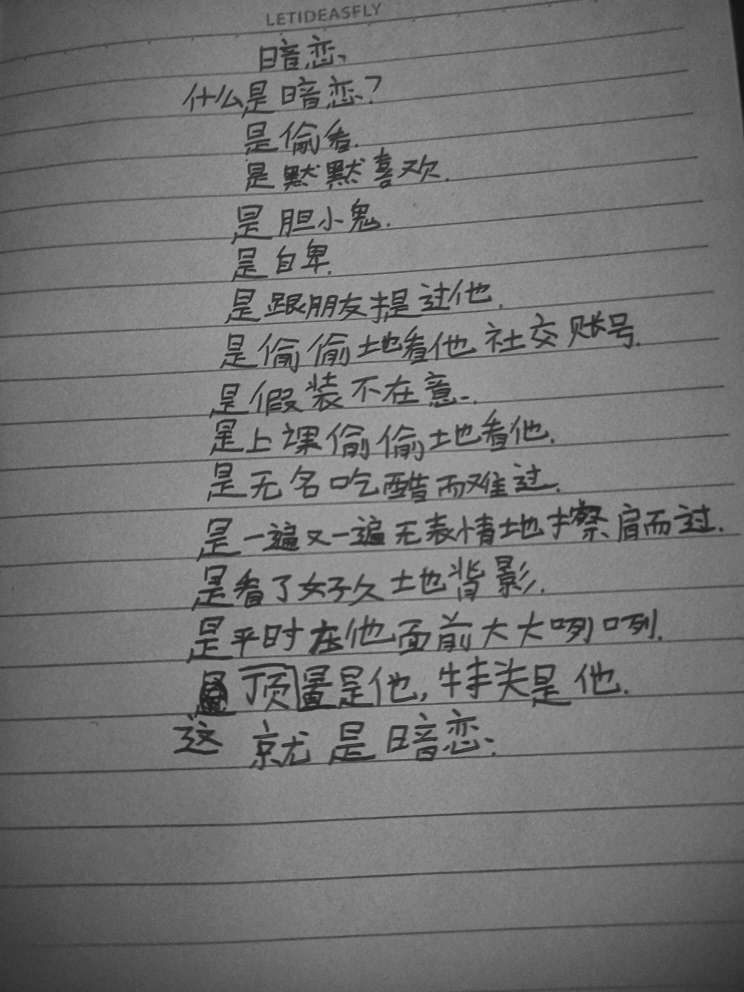 LETIDEASFLY
暗恋、
什么是暗恋?
是偷看.
是默默喜欢.
是胆小鬼.
是自卑.
是跟朋友提过他.
是偷偷地看他社交账号.
是假装不在意.
是上课偷偷地看他.
是无名吃醋而难过.
是一遍又一遍无表情地擦肩而过.
是看了好久地背影.
是平时在他面前大大咧咧.
顶置是他,特关是他.
这就是暗恋.